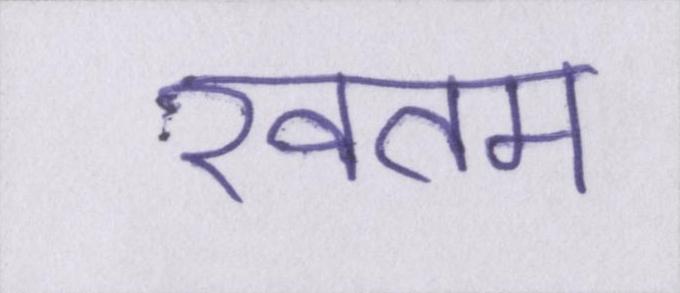 खतम